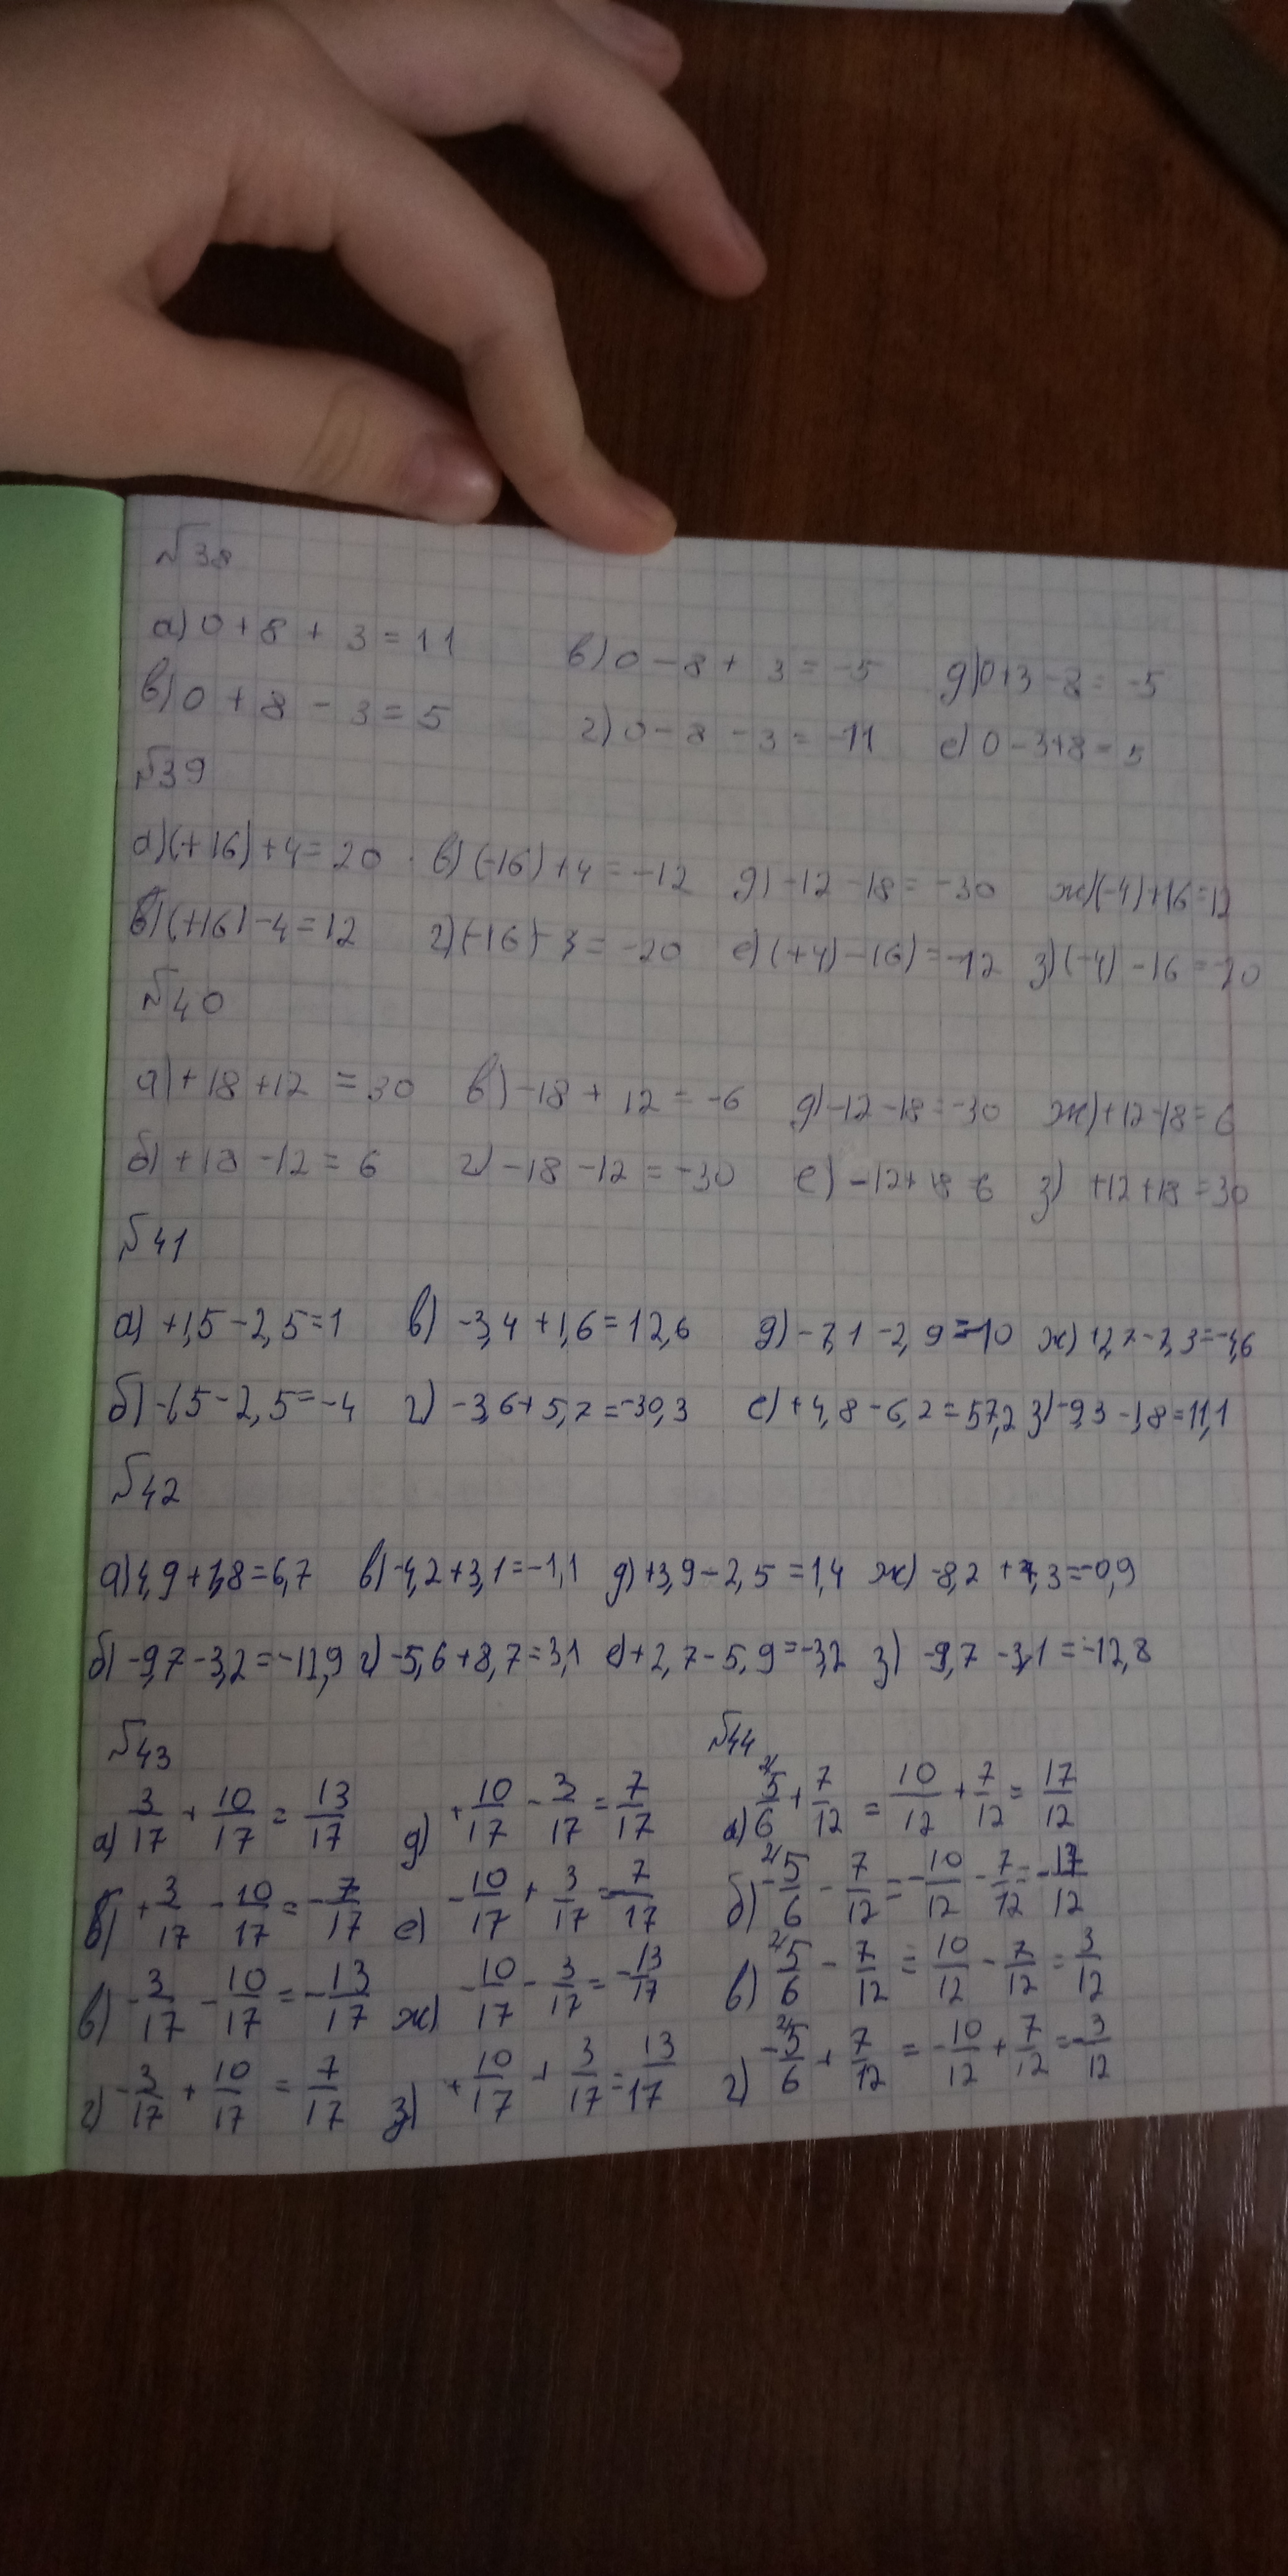 №38
а) 0 + 8 + 3 = 11 в) 0 - 8 + 3 = -5 д) 0 + 3 - 8 = -5
в) 0 + 8 - 3 = 5 г) 0 - 8 - 3 = -11 е) 0 - 3 + 8 = 5
№39
а) (+16) + 4 = 20 в) (-16) + 4 = -12 д) -12 - 18 = -30 ж) (-4) + 16 = 12
б) (+16) - 4 = 12 г) (-16) - = -20 е) (+4) - 16) = -12 з) (-4) - 16 = -20
№40
а) + 18 + 12 = 30 в) -18 + 12 = -6 д) -12 - 18 = -30 ж) +12 - 18 = 6
б) +18 - 12 = 6 г) -18 - 12 = -30 е) -12 + 18 6 з) +12 + 18 = 30
№41
а) +1,5 - 2,5 = 1 в) -3,4 + 1,6 = 12,6 д) -7,1 - 2,9 = -10 ж) +2,7 - 7,3 = -4,6
б) -1,5 - 2,5 = -4 г) -3,6 + 5,7 = -30,3 е) +4,8 - 6,2 = 57,2 з) -9,3 - 1,8 = 11,1
№42
а) 4,9 + 1,8 = 6,7 в) -4,2 + 3,1 = -1,1 д) +3,9 - 2,5 = 1,4 ж) -8,2 + 7,3 = -0,9
б) -9,7 - 3,2 = -12,9 г) -5,6 + 8,7 = 3,1 е) +2,7 - 5,9 = -3,2 з) -9,7 - 3,1 = -12,8
№43 №44
а) 3/17 + 10/17 = 13/17 д) +10/17 - 3/17 = 7/17 а) 2/ 5/6 + 7/12 = 10/12 + 7/12 = 17/12
б) +3/17 - 10/17 = -7/17 е) -10/17 + 3/17 = -7/17 б) 2/ -5/6 - 7/12 = -10/12 - 7/12 = -17/12
в) -3/17 - 10/17 = -13/17 ж) -10/17 - 3/17 = -13/17 в) 2/ 5/6 - 7/12 = 10/12 - 7/12 = 3/12
г) -3/17 + 10/17 = 7/17 з) +10/17 + 3/17 = 13/17 г) 2/ -5/6 + 7/12 = -10/12 + 7/12 = -3/12